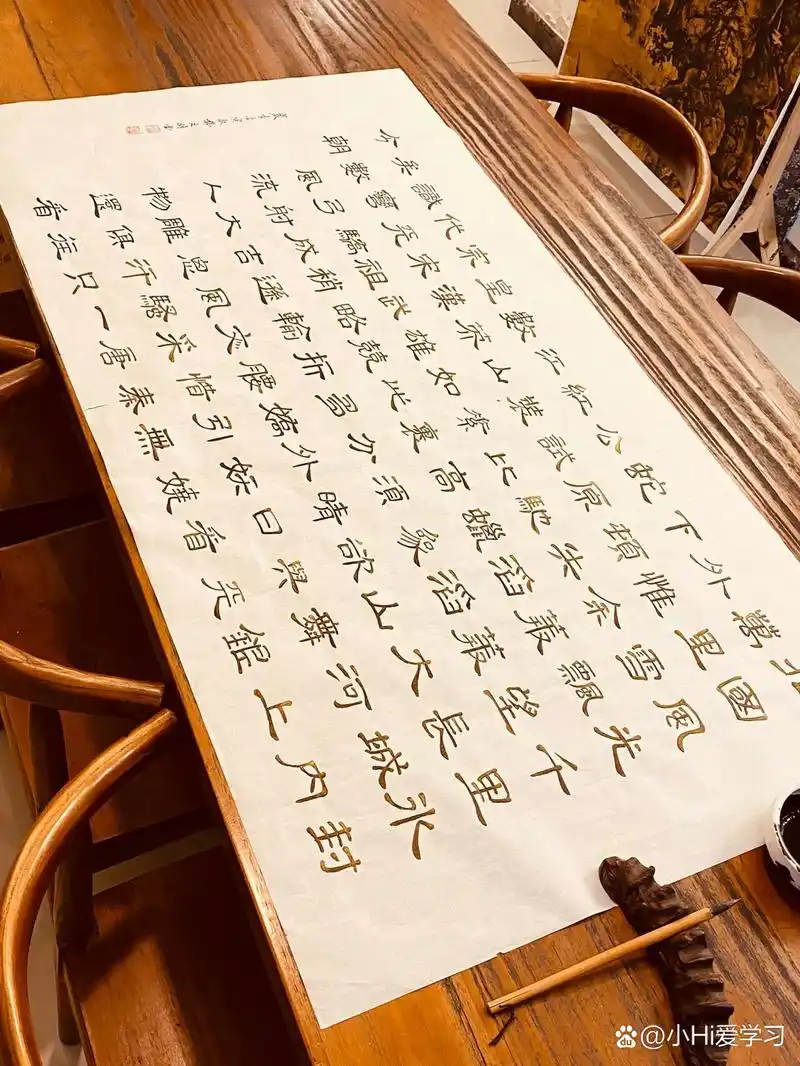 北國風光千里冰封
萬里雪飄望長城內
外惟余莽莽大河上
下頓失滔滔山舞銀
蛇原馳蠟象欲與天
公試比高須晴日看
紅裝素裹分外妖嬈
江山如此多嬌引無
數英雄競折腰惜秦
皇漢武略輸文采唐
宗宋祖稍遜風騷一
代天驕成吉思汗只
識彎弓射大雕俱往
矣數風流人物還看
今朝
@小Hi爱学习